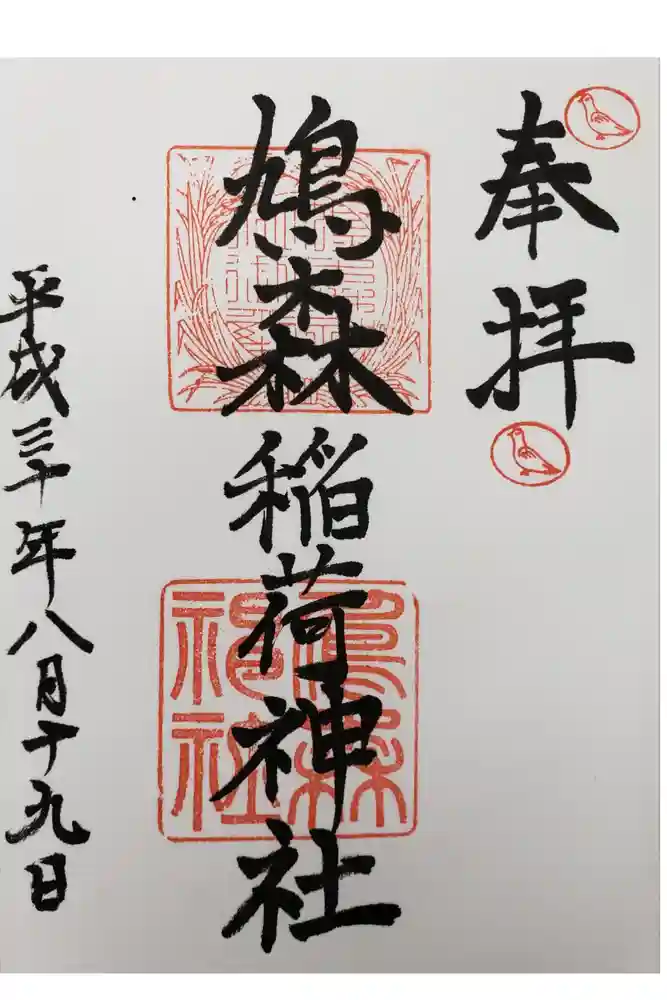 奉拝
鳩森稲荷神社
平成三十年八月十九日
鳩森
神社